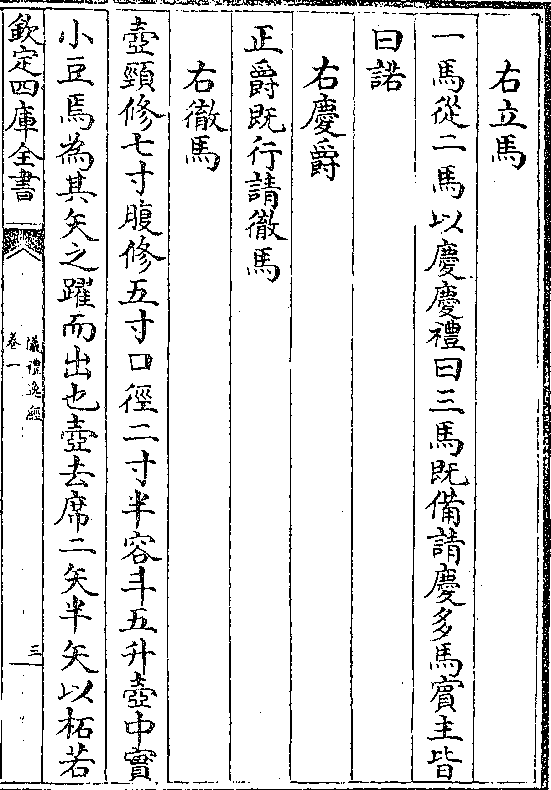 右立馬
一馬從二馬以慶慶禮曰三馬既備請慶多馬賓主皆
曰諾
右慶爵
正爵既行請徹馬
右徹馬
壺頸修七寸腹修五寸口徑二寸半容斗五升壺中實
小豆焉為其矢之躍而出也壺去席二矢半矢以柘若
欽定四庫全書
儀禮逸經
卷一
三